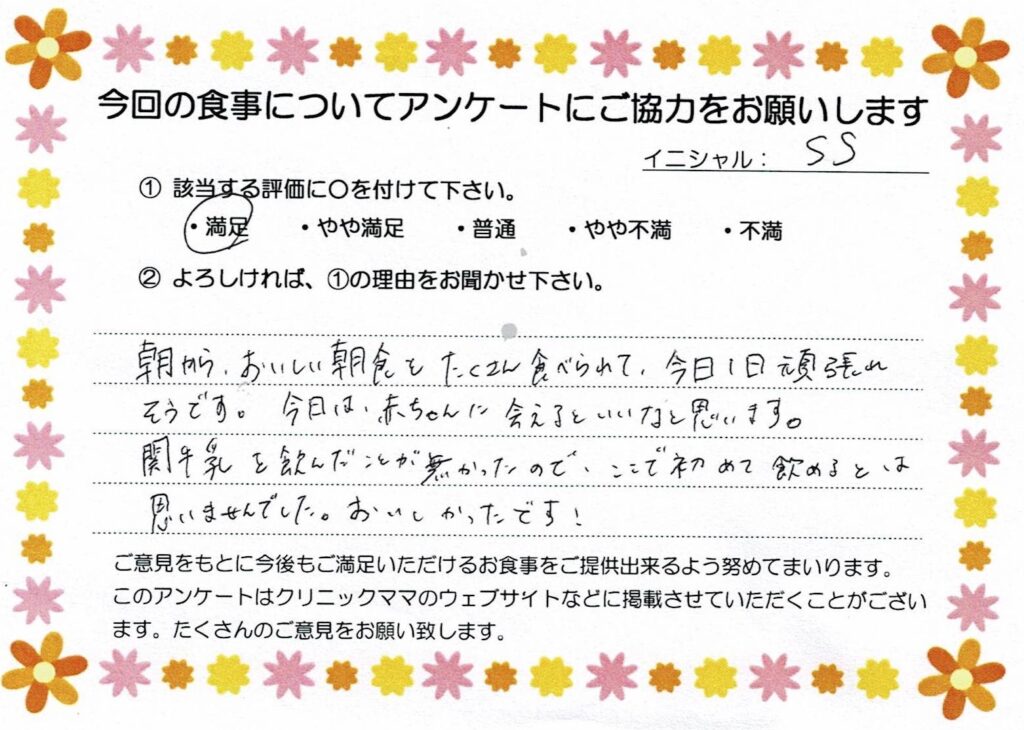 今回の食事についてアンケートにご協力をお願いします
イニシャル： SS
① 該当する評価に〇を付けて下さい。
・満足 ・やや満足 ・普通 ・やや不満 ・不満
② よろしければ、①の理由をお聞かせ下さい。
朝から、おいしい朝食をたくさん食べられて、今日1日頑張れ
そうです。今日は、赤ちゃんに会えるといいなと思います。
関牛乳を飲んだことが無かったので、ここで初めて飲めるとは
思いませんでした。おいしかったです！
ご意見をもとに今後もご満足いただけるお食事をご提供出来るよう努めてまいります。
このアンケートはクリニックママのウェブサイトなどに掲載させていただくことがござい
ます。たくさんのご意見をお願い致します。